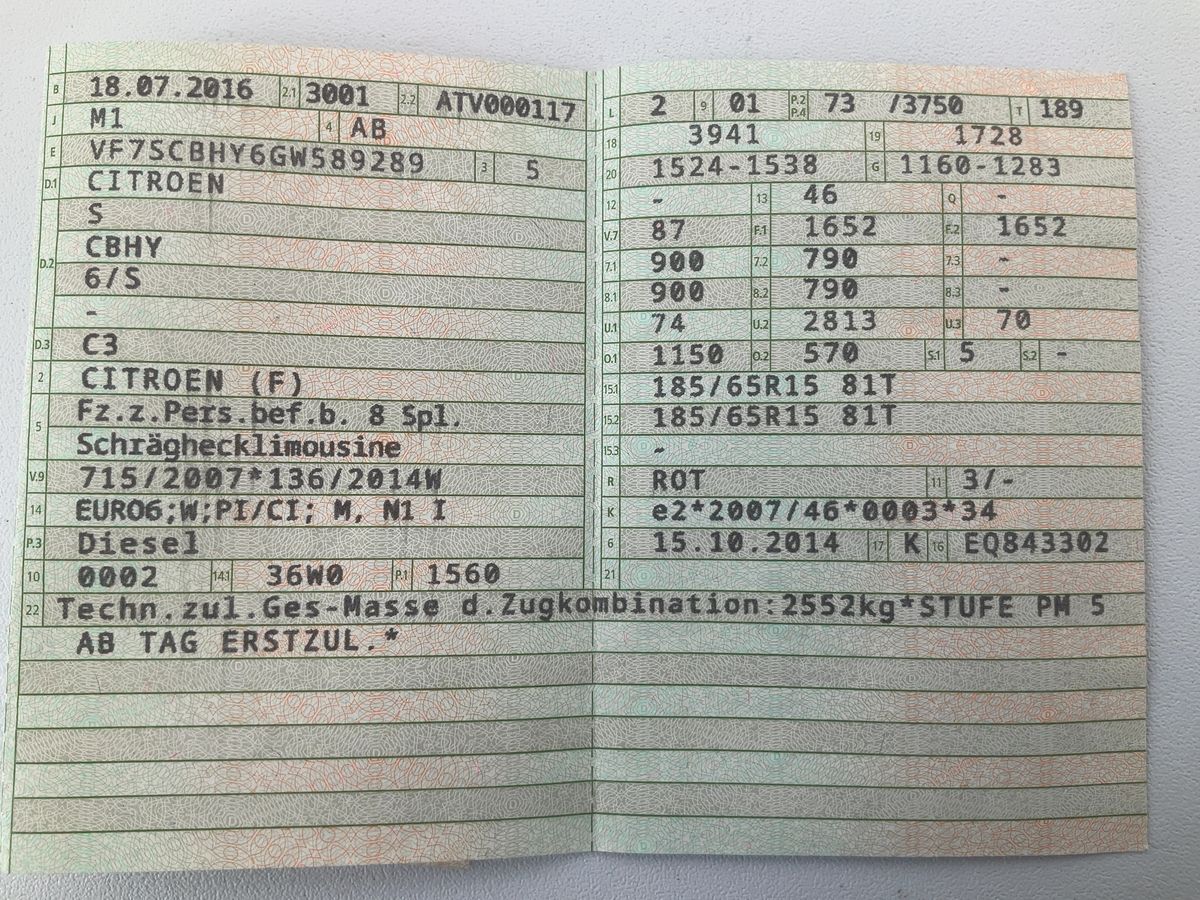 B 18.07.2016 2.1 3001 2.2 ATV000117
J M1 4 AB
E VF7SCBHY6GW589289 3 5
D.1 CITROEN
S
D.2 CBHY
6/S
-
D.3 C3
2 CITROEN (F)
5 Fz.z.Pers.bef.b. 8 Spl.
Schräghecklimousine
V.9 715/2007*136/2014W
14 EURO6;W;PI/CI; M, N1 I
P.3 Diesel
10 0002 14.1 36W0 P.1 1560
L 2 9 01 P.2 P.4 73 /3750 T 189
18 3941 19 1728
20 1524-1538 G 1160-1283
12 - 13 46 Q -
V.7 87 F.1 1652 F.2 1652
7.1 900 7.2 790 7.3 -
8.1 900 8.2 790 8.3 -
U.1 74 U.2 2813 U.3 70
O.1 1150 O.2 570 S.1 5 S.2 -
15.1 185/65R15 81T
15.2 185/65R15 81T
15.3 -
R ROT 11 3/-
K e2*2007/46*0003*34
6 15.10.2014 17 K 16 EQ843302
21
22 Techn.zul.Ges-Masse d.Zugkombination:2552kg*STUFE PM 5
AB TAG ERSTZUL.*